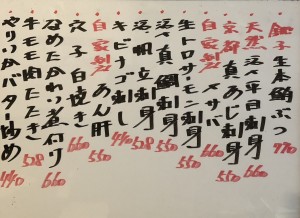 銚子生本鮪ぶつ 770
天然活〆平目刺身 770
京都真あじ刺身 550
自家製〆サバ 660
生トロサーモン刺身 550
活〆真鯛刺身 550
活帆立刺身 528
キビナゴ刺し 440
自家製あん肝 550
穴子白焼き 660
なめたかれい煮付け 660
牛モモ肉たたき 528
やりいかバター炒め 440